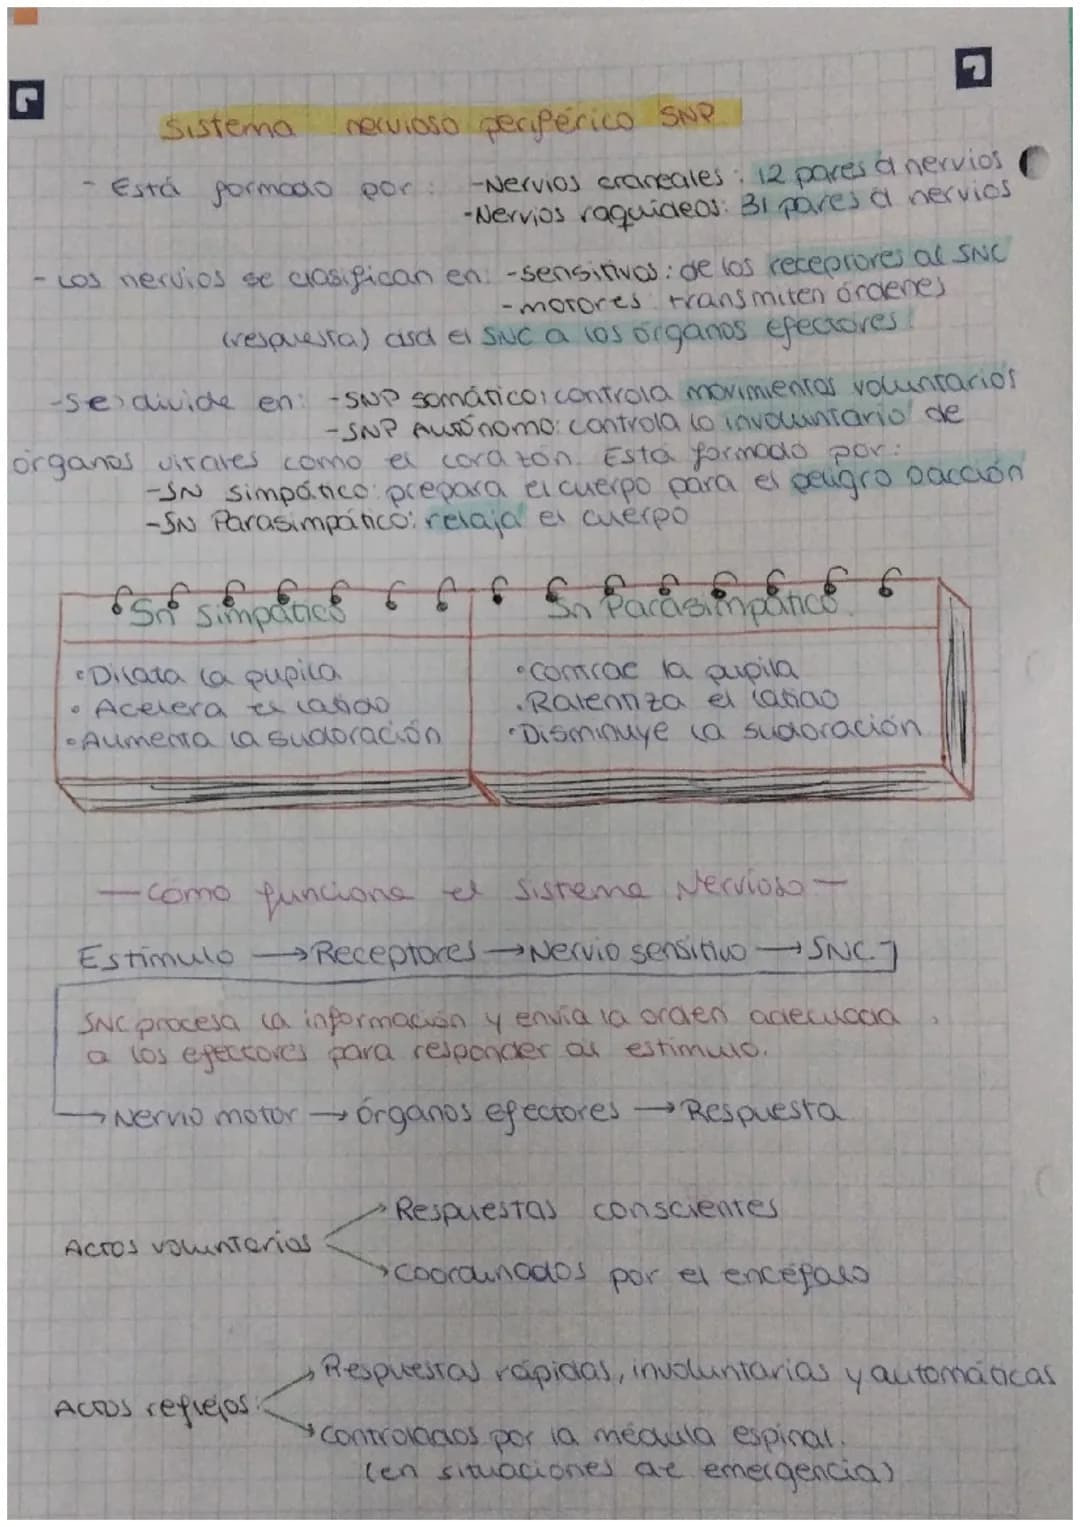 Sistema nervioso periférico SNP
- Está formado por: -Nervios craneales: 12 pares d nervios
-Nervios raquídeos: 31 pares d nervios
- Los nervios se clasifican en: -sensitivos: de los receptores al SNC
-motores: transmiten órdenes
(respuesta) dsd el SNC a los órganos efectores.
-Se divide en: -SNP somático: controla movimientos voluntarios
-SNP Autónomo: controla lo involuntario de
órganos vitales como el corazón. Está formado por:
-SN simpático: prepara el cuerpo para el peligro o acción
-SN Parasimpático: relaja el cuerpo
Sn Simpático
Sn Parasimpático.
•Dilata la pupila
•contrae la pupila
• Acelera el latido
.Ralentiza el latido
•Aumenta la sudoración
•Disminuye la sudoración
—Cómo funciona el Sistema Nervioso—
Estímulo → Receptores → Nervio sensitivo → SNC
SNC procesa la información y envía la orden adecuada
a los efectores para responder al estímulo.
→ Nervio motor → órganos efectores → Respuesta
Respuestas conscientes
Actos voluntarios
Coordinados por el encéfalo
Respuestas rápidas, involuntarias y automáticas
Actos reflejos:
Controlados por la médula espinal.
(en situaciones de emergencia)